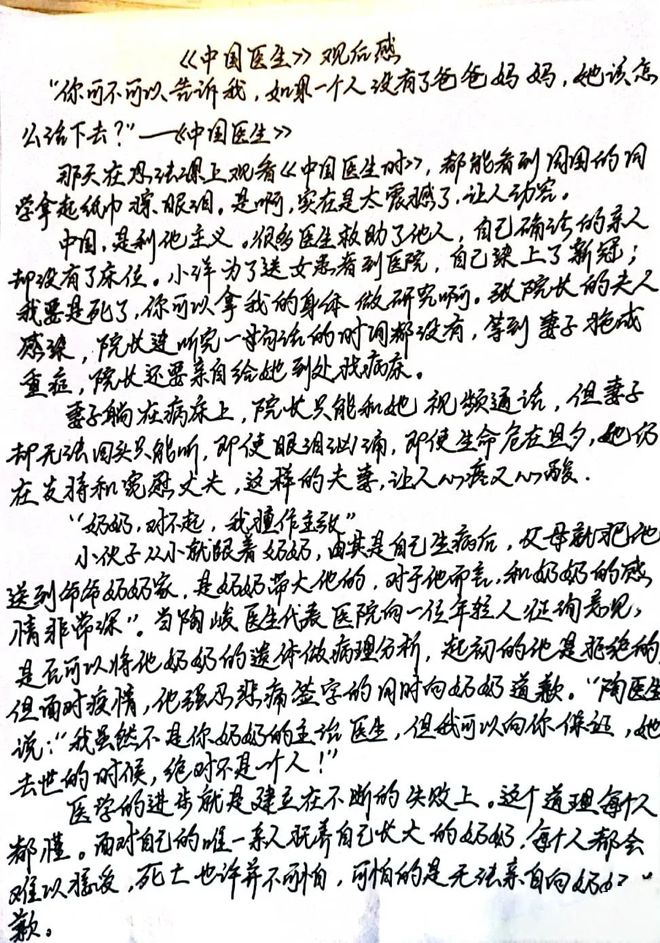 《中国医生》观后感
“你可不可以告诉我，如果一个人没有了爸爸妈妈，她该怎
么活下去？”—《中国医生》
那天在思法课上观看《中国医生时》，都能看到周围的同
学拿起纸巾擦眼泪。是啊，实在是太震撼了，让人动容。
中国，是利他主义。很多医生救助了他人，自己确诊的亲人
却没有了床位。小洋为了送女患者到医院，自己染上了新冠；
我要是死了，你可以拿我的身体做研究啊。张院长的夫人
感染，院长连听完一句话的时间都没有，等到妻子拖成
重症，院长还要亲自给她到处找病床。
妻子躺在病床上，院长只能和她视频通话，但妻子
却无法回头只能听，即使眼泪汹涌，即使生命危在旦夕，她仍
在支持和宽慰丈夫，这样的夫妻，让人心疼又心酸．
“奶奶，对不起，我擅作主张”
小伙子从小就跟着奶奶，由其是自己生病后，父母就把他
送到爷爷奶奶家，是奶奶带大他的，对于他而言，和奶奶的感
情非常深”。当陶峻医生代表医院向一位年轻人征询意见，
是否可以将他奶奶的遗体做病理分析，起初的他是拒绝的
但面对疫情，他强忍悲痛签字的同时向奶奶道歉。“陶医生
说：“我虽然不是你奶奶的主治医生，但我可以向你保证，她
去世的时候，绝对不是一个人！”
医学的进步就是建立在不断的失败上。这个道理每个人
都懂。面对自己的唯一亲人抚养自己长大的奶奶，每个人都会
难以接受，死亡也许并不可怕，可怕的是无法亲自向奶奶
歉。